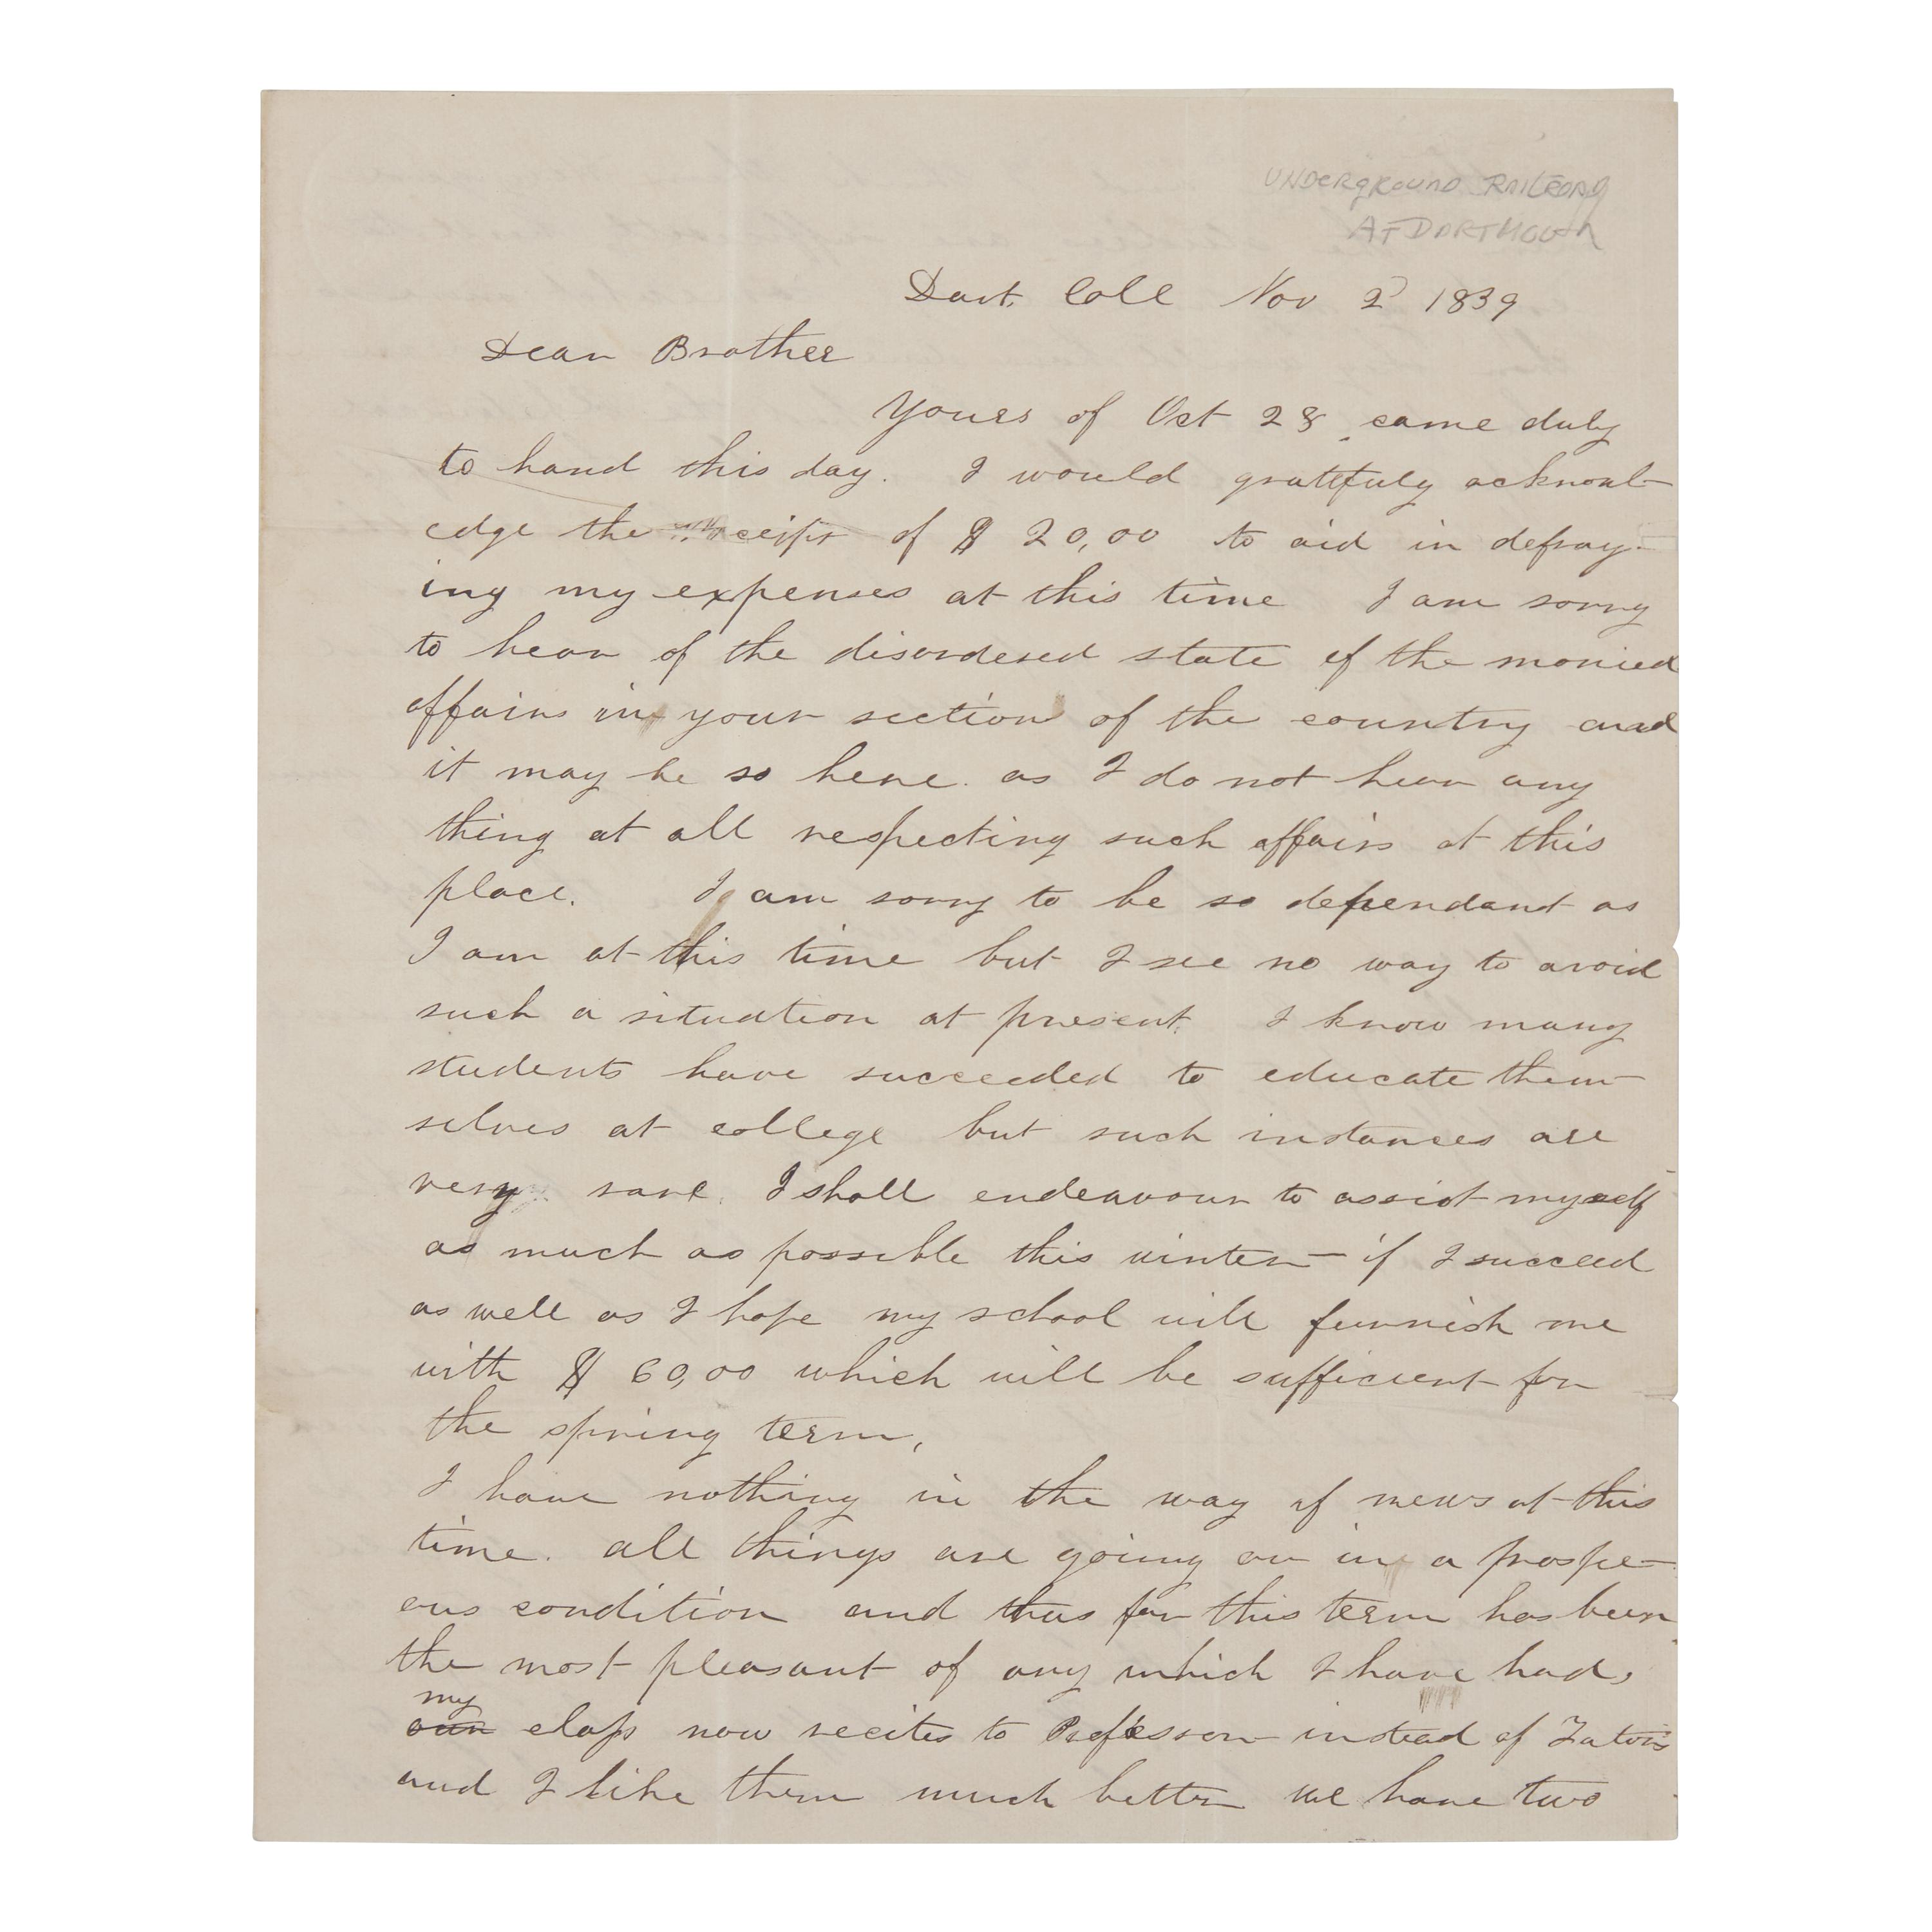 UNDERGROUND RAILROAD
AT DARTMOUTH
Dart. Coll Nov 2d 1839
Dear Brother
Yours of Oct 28 came duly
to hand this day. I would gratefuly acknowl-
edge the receipt of $ 20,00 to aid in defray-
ing my expenses at this time I am sorry
to hear of the disordered state of the monied
affairs in your section of the country and
it may be so here. as I do not hear any
thing at all respecting such affairs at this
place. I am sorry to be so dependant as
I am at this time but I see no way to avoid
such a situation at present. I know many
students have succeeded to educate them-
selves at college but such instances are
very rare. I shall endeavour to assist myself
as much as possible this winter – if I succeed
as well as I hope my school will furnish me
with $ 60,00 which will be sufficient for
the spring term,
I have nothing in the way of news at this
time. all things are going on in a prospe-
ous condition and thus far this term has been
the most pleasant of any which I have had,
my
our class now recites to Professor instead of Tutors
and I like them much better we have two